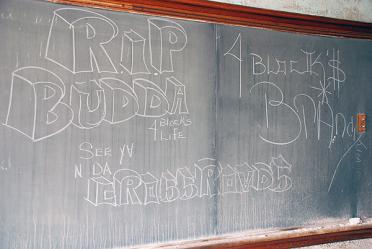 R.I.P
BUDDA
4 BLOCK'S
LIFE
SEE YA
N DA
CROSSROADS
4 BlocK'$